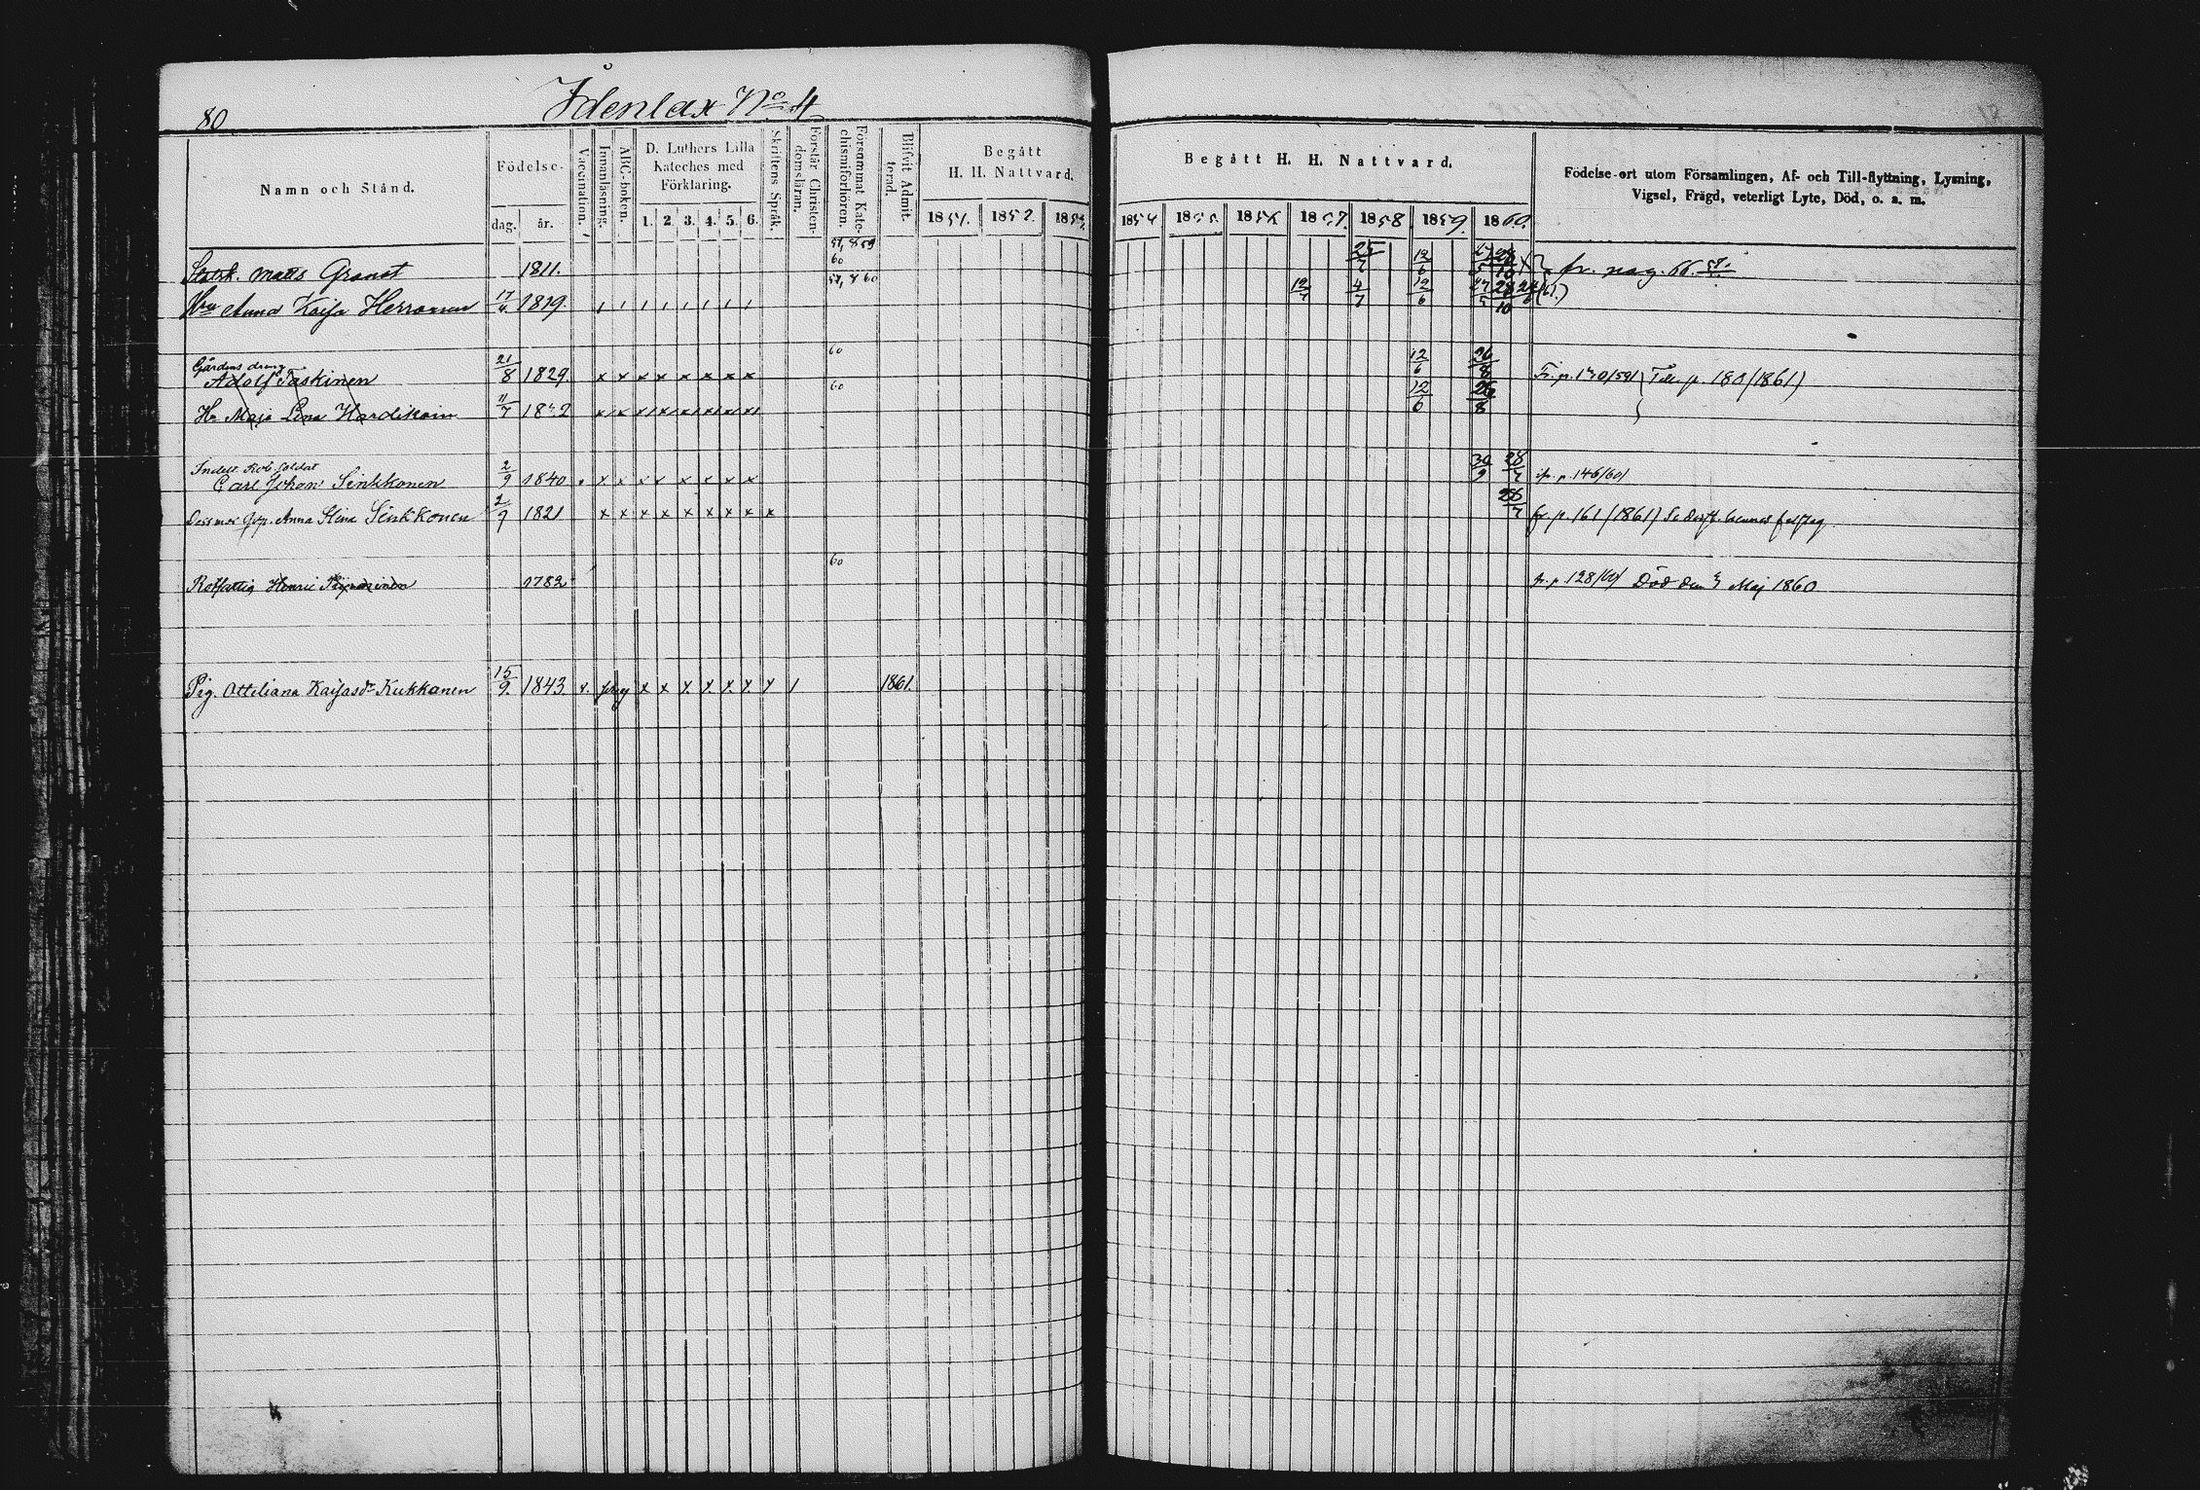 80
Idenlax No 4
Namn och Stånd.
Födelse-
dag. år.
Vaccination.
Innanläsning.
ABC-boken.
D. Luthers Lilla Kateches med Förklaring.
1. 2. 3. 4. 5. 6.
Skriftens Språk.
Förstår Christendomsläran.
Försummat Katechismiförhören.
Blifvit Admitterad.
Begått H. H. Nattvard.
1851. 1852. 1853.
Begått H. H. Nattvard.
1854 1855 1856 1857. 1858. 1859. 1860.
Födelse-ort utom Församlingen, Af- och Till-flyttning, Lysning, Vigsel, Frägd, veterligt Lyte, Död, o. s. m.
Matts Granat 1811. 57, 8 59 60 25/7 12/6 fr. pag. 66
Anna Kaisa Herranen 17 1819. 57, 8 60 12 4/7 12/6 27/5 28/10
Gårdens dräng
Adolf Taskinen 21/8 1829 x x x x x x x x 60 12/6 26/8 Fr. p. 170/59 Till p. 180 (1861)
H. Maja Lena Hardikain 11/7 1832 x x x x x x x x 60 12/6 26/8
Indelt Rot Soldat
Carl Johan Sinkkonen 2/9 1840 x x x x x x x x 30/9 28/7 fr. p. 146/60
Anna Stina Sinkkonen 2/9 1821 x x x x x x x x x 28/7 fr. p. 161 (1861)
Rotfattig Henric 1782 60 fr. p. 128/60 Död den 3 Maj 1860
Pig. Otteliana Kaisasdr Kukkanen 15/9. 1843 v. x x x x x x x / 1861.